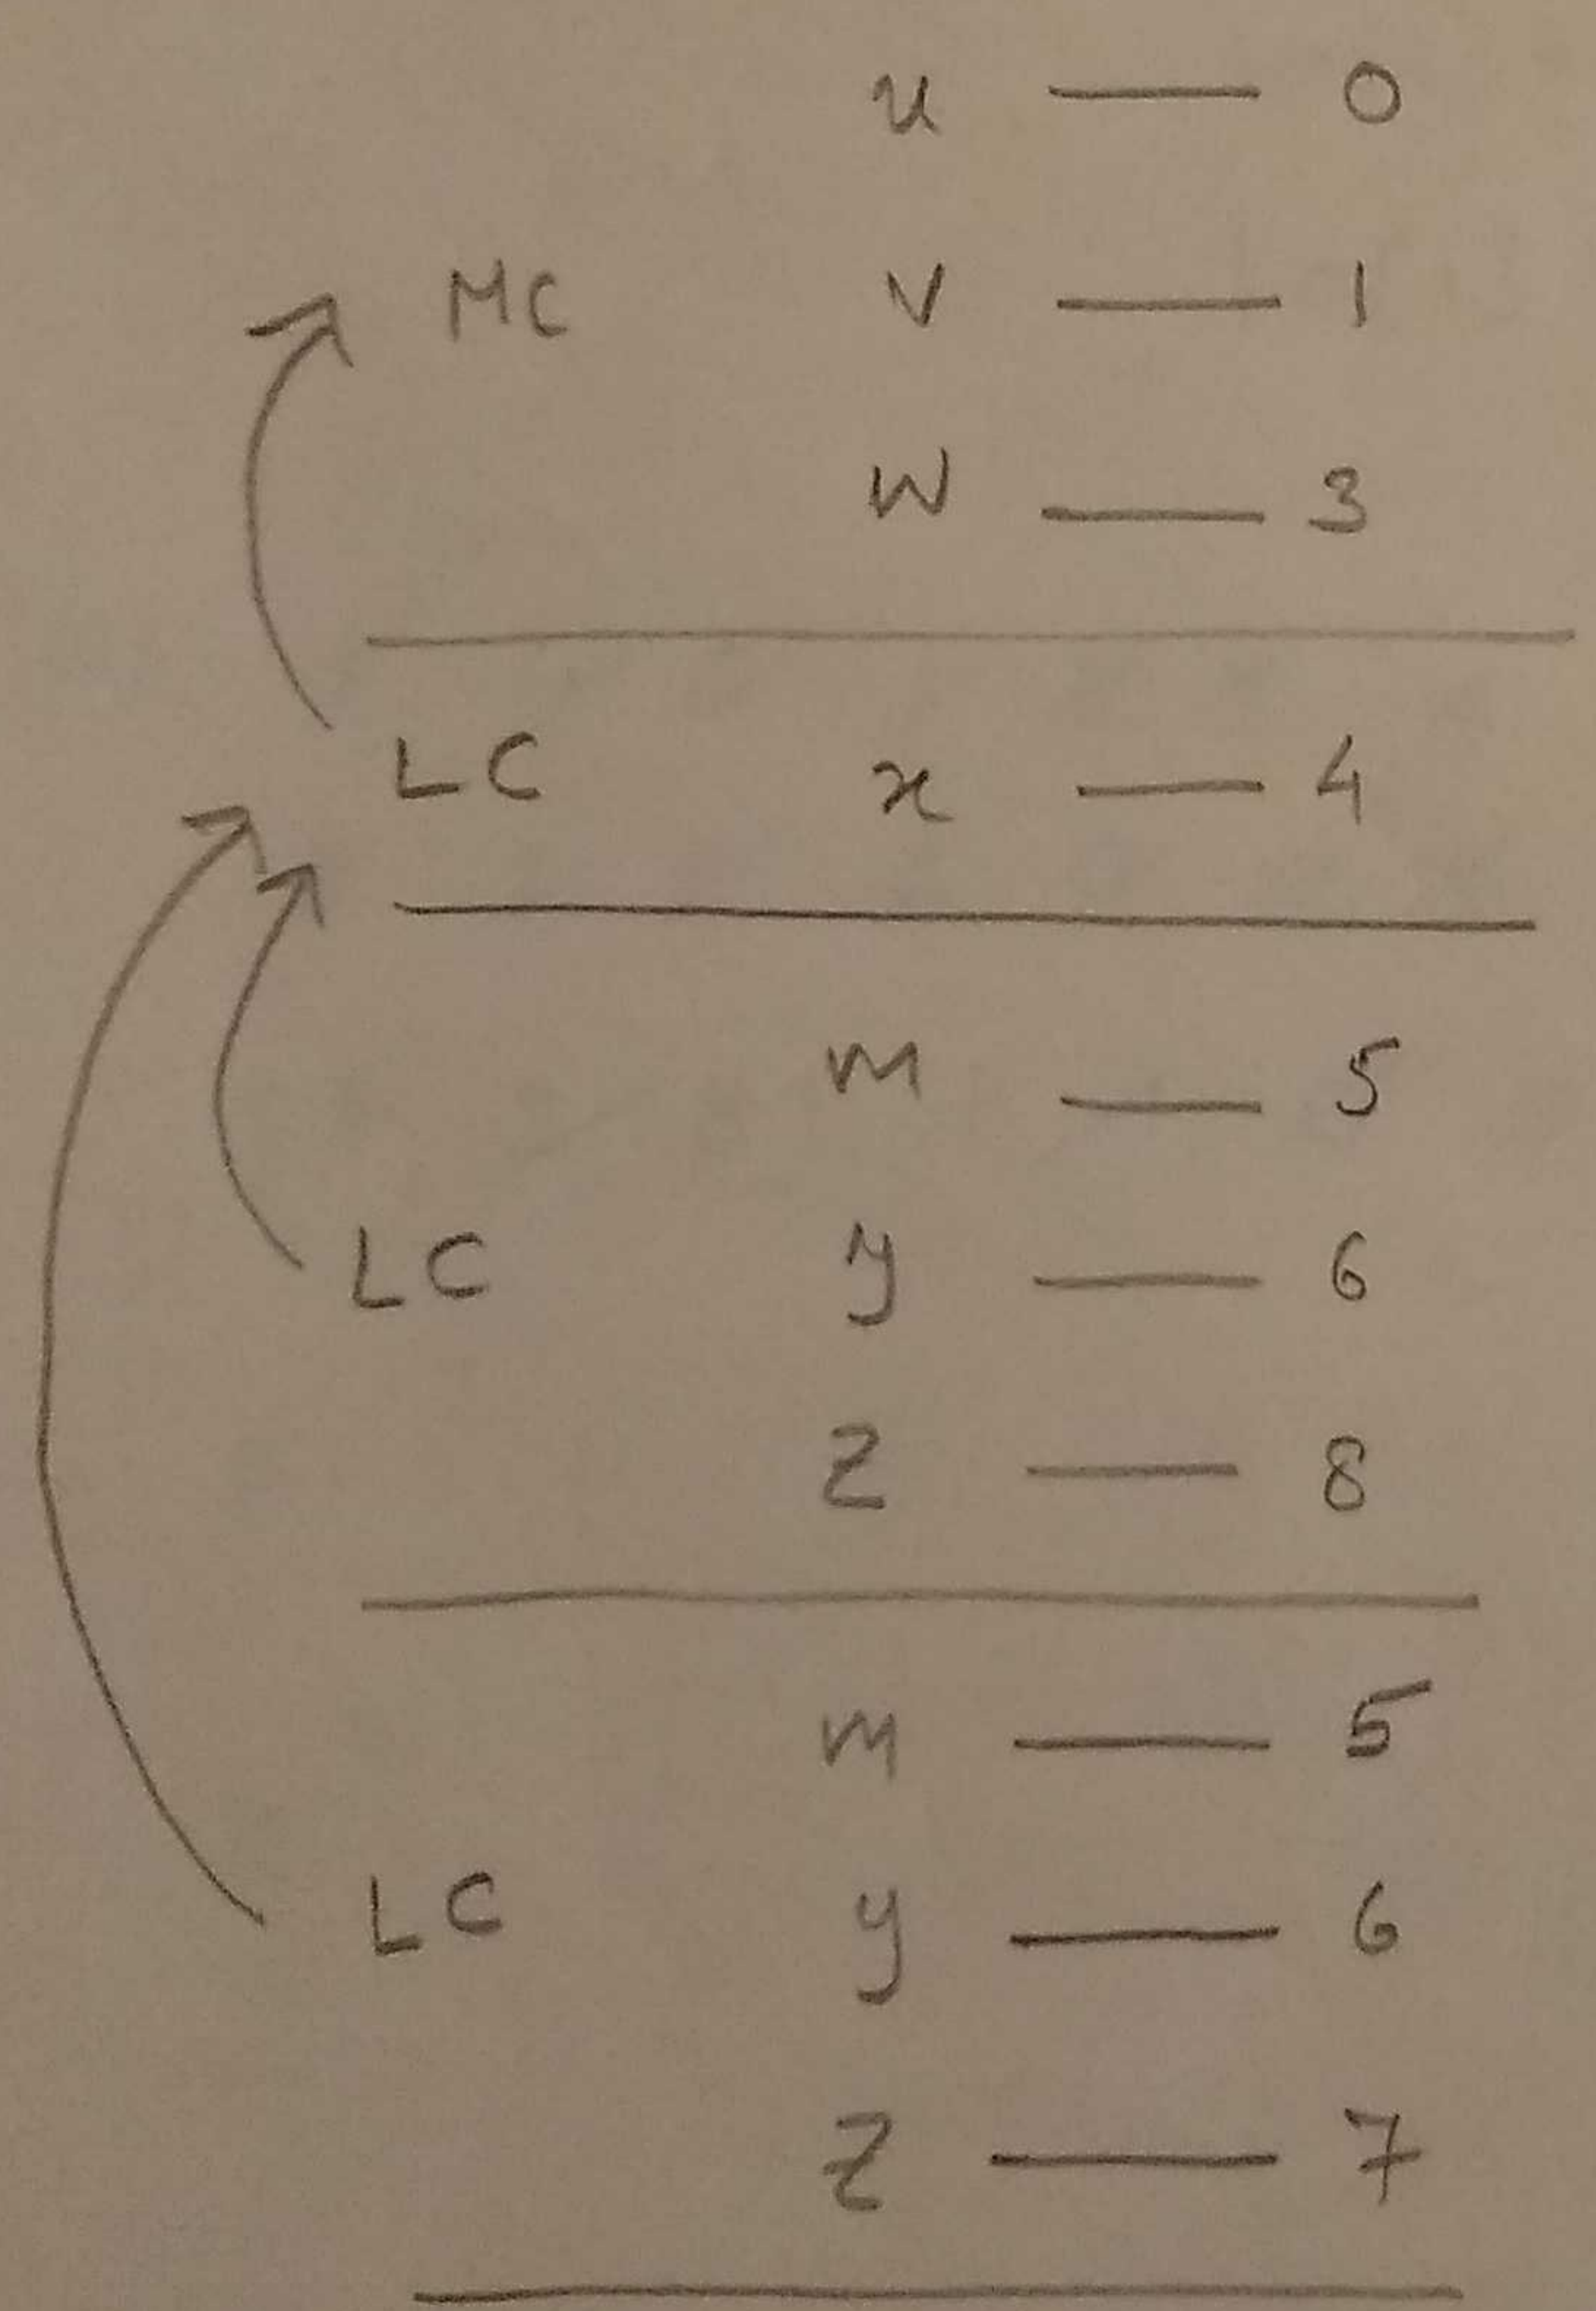 u — 0
MC v — 1
w — 3
LC x — 4
m — 5
LC y — 6
z — 8
m — 5
LC y — 6
z — 7